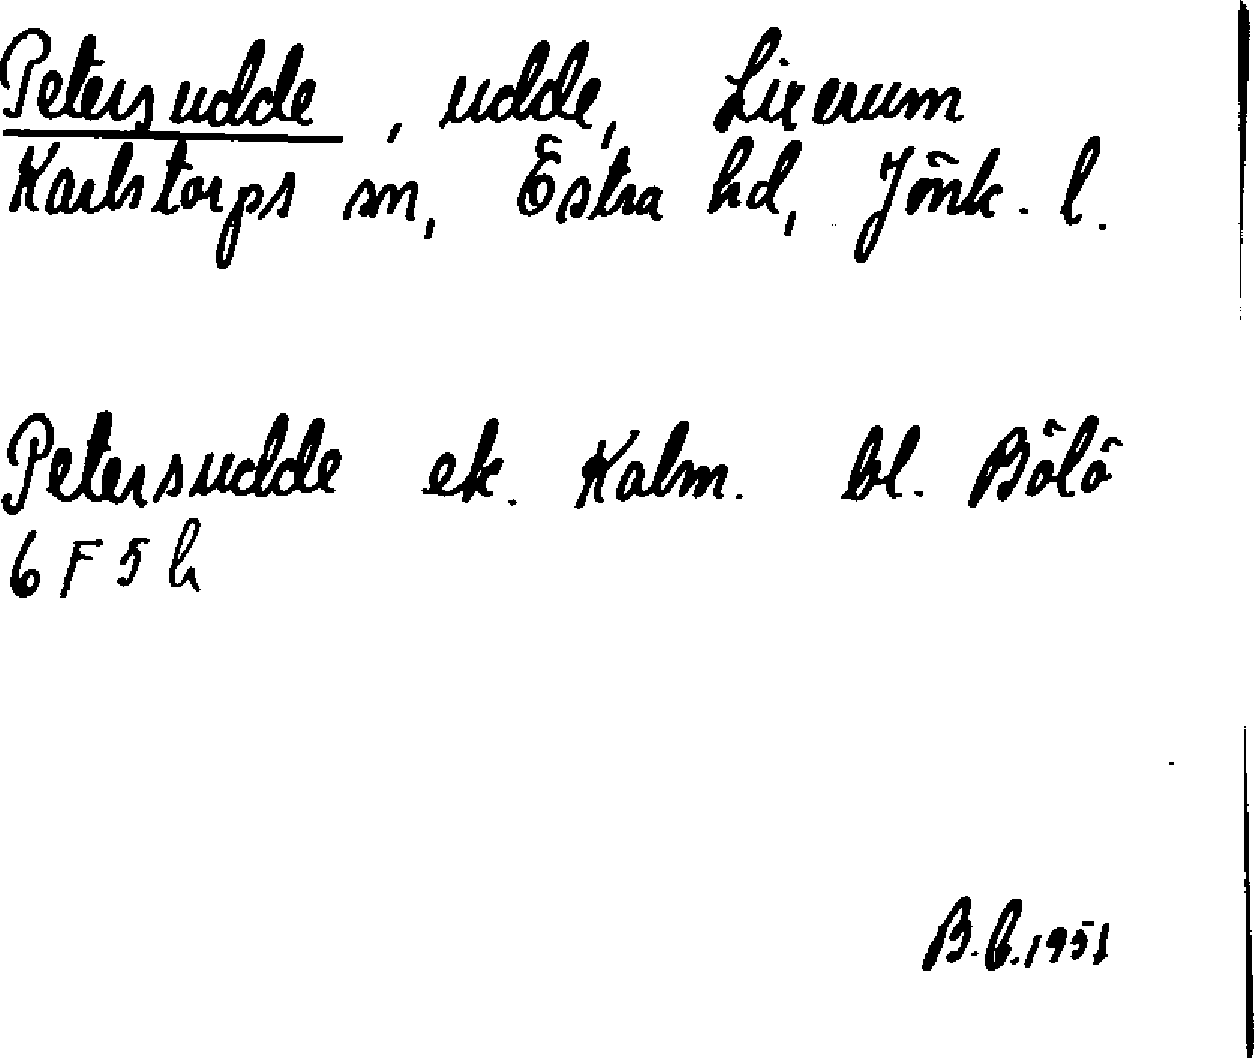 Petersudde, udde, Lixerum
Karlstorps sn, Östra hd, Jönk. l.
Petersudde ek. Kalm. bl. Bölö
6 F 5 h
B.b. 1951